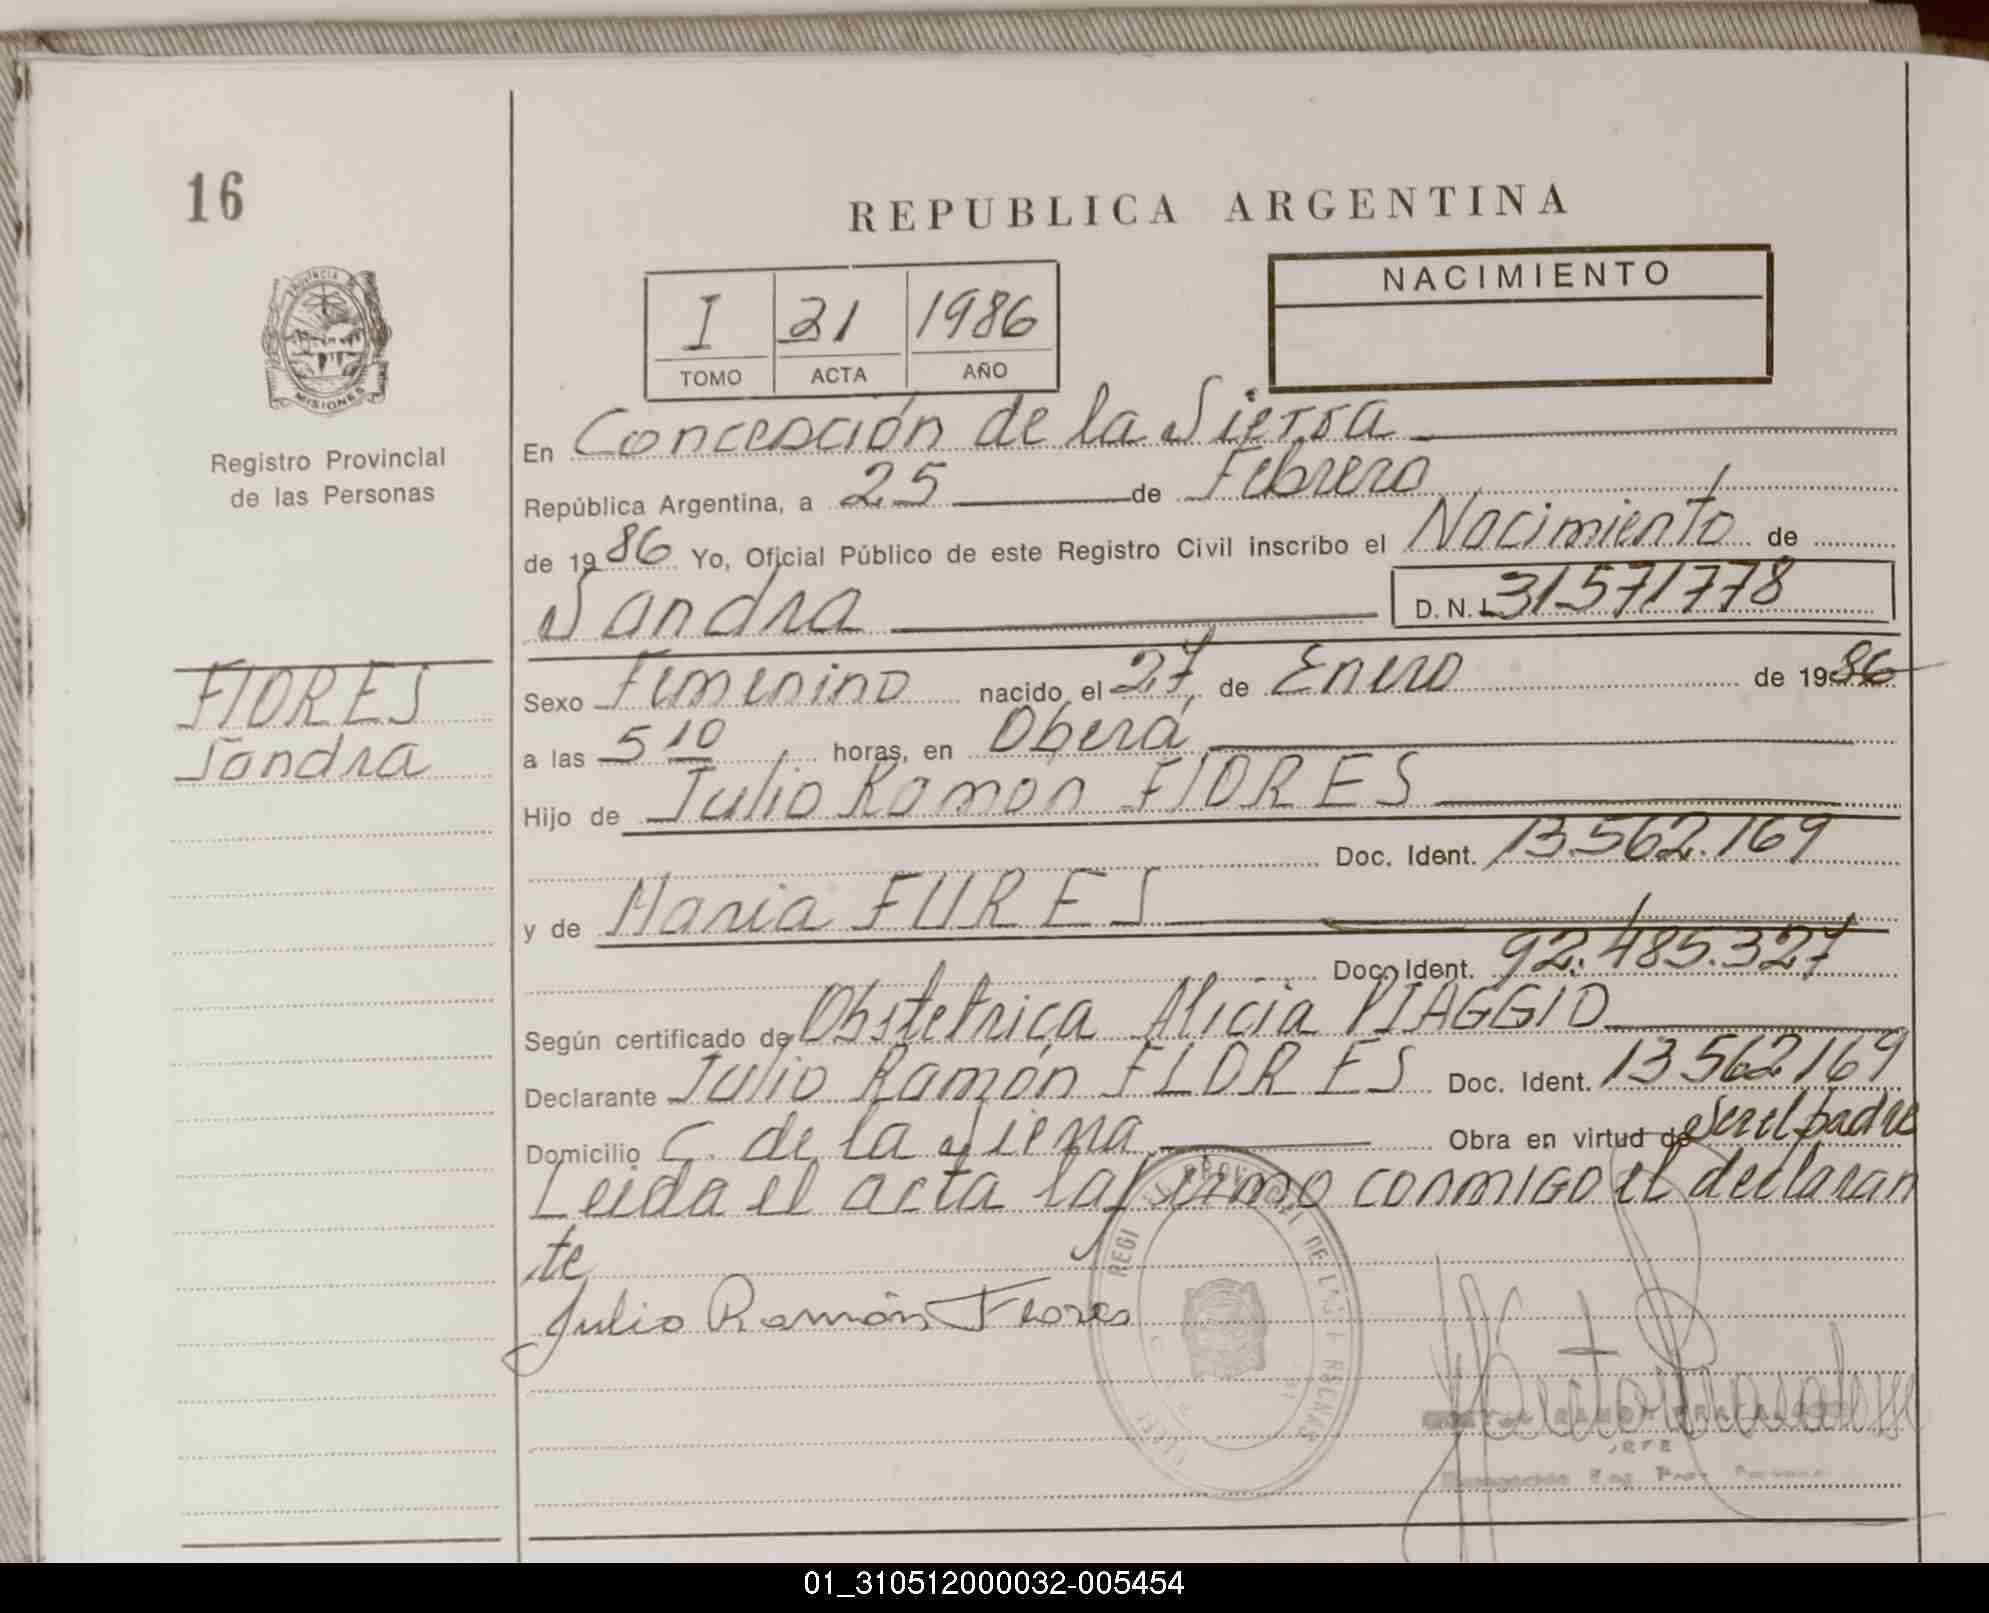 16
REPUBLICA ARGENTINA
NACIMIENTO
I 31 1986
TOMO ACTA AÑO
PROVINCIA
MISIONES
Registro Provincial
de las Personas
En Concepción de la Sierra
República Argentina, a 25 de Febrero
de 1986 Yo, Oficial Público de este Registro Civil inscribo el Nacimiento de
Sandra D. N. I. 31571778
FLORES
Sandra
Sexo Femenino nacido el 27, de Enero de 1986
a las 5 10 horas, en Oberá
Hijo de Julio Ramon FLORES
Doc. Ident. 13.562.169
y de Maria FURES
Doc. Ident. 92.485.327
Según certificado de Obstetrica Alicia VIAGGIO
Declarante Julio Ramón FLORES Doc. Ident. 13562169
Domicilio C. de la Sierra Obra en virtud de Ser el padre
Leida el acta la firmo conmigo el declaran
te
Julio Ramón Flores
JEFE
01_310512000032-005454